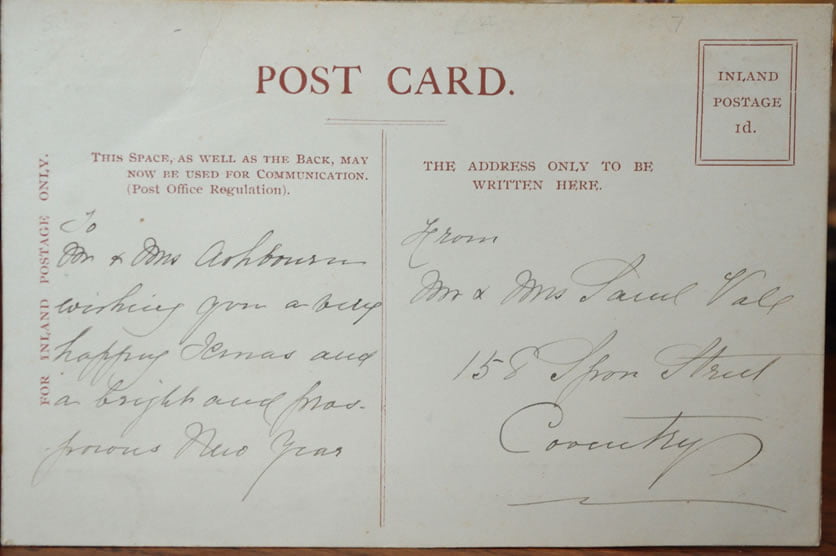 POST CARD.
INLAND
POSTAGE
1d.
FOR INLAND POSTAGE ONLY.
THIS SPACE, AS WELL AS THE BACK, MAY
NOW BE USED FOR COMMUNICATION.
(Post Office Regulation).
To
Mr & Mrs Ashbourn
wishing you a very
happy Xmas and
a bright and pros-
perous New Year
THE ADDRESS ONLY TO BE
WRITTEN HERE.
From
Mr & Mrs Saml Vale
158 Spon Street
Coventry